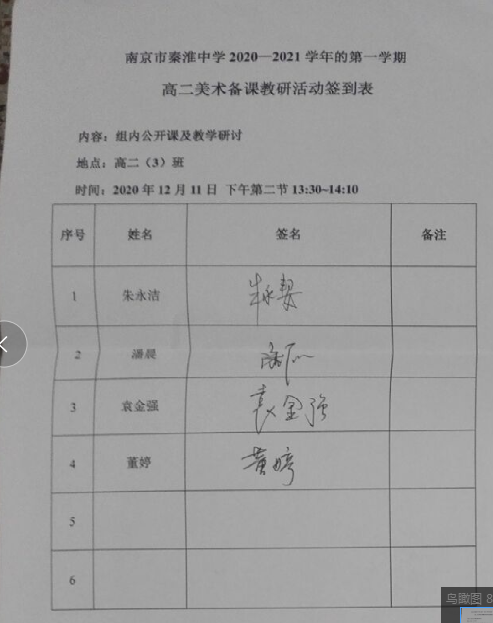 南京市秦淮中学2020—2021学年的第一学期
高二美术备课教研活动签到表
内容：组内公开课及教学研讨
地点：高二（3）班
时间：2020年12月11日 下午第二节13:30~14:10
序号 姓名 签名 备注
1 朱永洁
2 潘晨
3 袁金强 袁金强
4 董婷 董婷
5
6
鸟瞰图 8